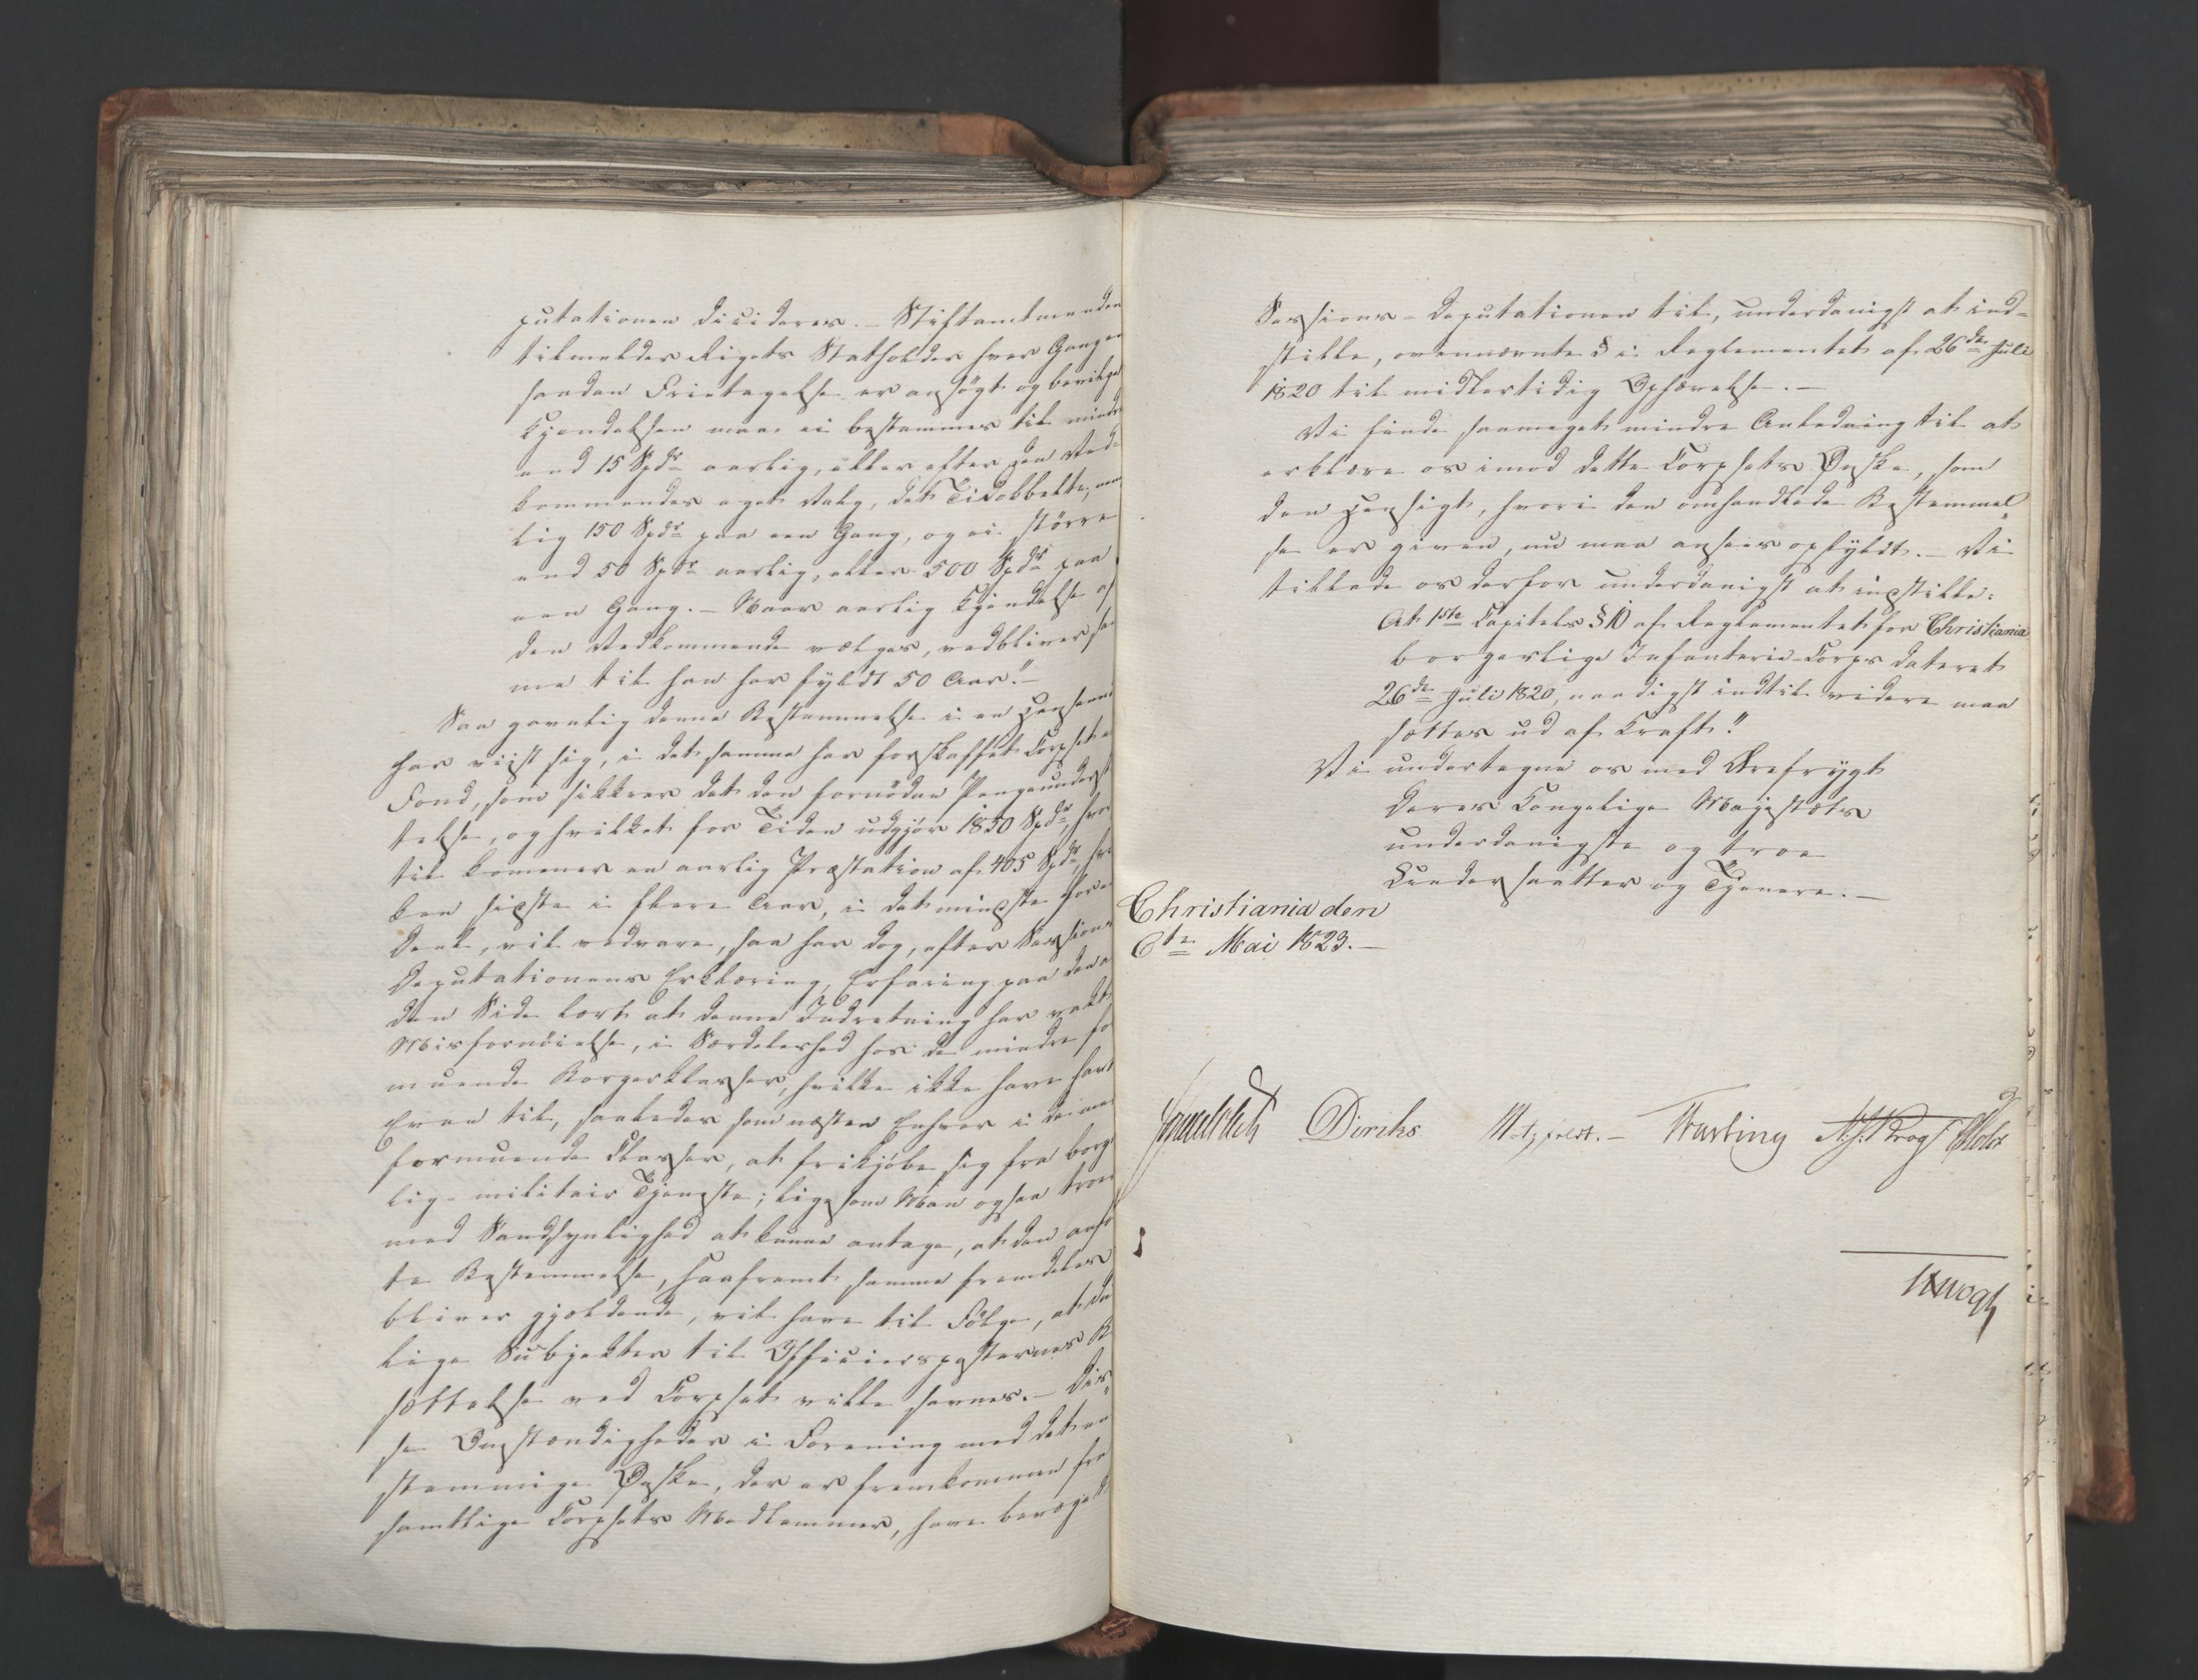 putationen decideres. – Stiftamtmanden
tilmelder Rigets Statholder hver Gang en
saadan Fritagelse er ansøgt og bevilget
Kjendelsen maa ei bestemmes til mindre
end 15 Spdr aarlig, eller efter den Ved-
kommendes eget Valg, det Tidobbelte, nem
lig 150 Spdr paa een Gang, og ei større
end 50 Spdr aarlig, eller 500 Spdr paa
een Gang. – Naar aarlig Kjendelse af
den Vedkommende vælges, vedbliver sa
me til han har fyldt 50 Aar." –
Saa gavnlig denne Bestemmelse i een Henseende
har viist sig, i det samme har forskaffet Corpset e
Fond, som sikkrer det den fornødne Pengeunderst
telse, og hvilket for Tiden udgjør 1850 Spdr, hvor
til kommer en aarlig Præstation af 405 Spdr, hvi
ken sidste i flere Aar, i det mindste for en
Deel, vil vedvare, saa har dog, efter Sessions
Deputationens Erklæring, Erfaring paa den a
den Side lært at denne Indretning har vakt
Misfornøielse, i Særdeleshed hos de mindre fo
muende Borgerklasser, hvilke ikke have havt
Evne til, saaledes som næsten Enhver i de me
formuende Classer, at frikjøbe sig fra borge
lig-militair Tjeneste; ligesom Man ogsaa troer
med Sandsynlighed at kunne antage, at den anfø
te Bestemmelse, saafremt samme fremdeles
bliver gjældende, vil have til Følge, at due
lige Subjekter til Officiersposternes Be
sættelse ved Corpset ville savnes. – Dis„
se Omstændigheder i Forening med det een
stemmige Ønske, der er fremkommen fra
samtlige Corpsets Medlemmer, have bevæget
Sessions-Deputationen til, underdanigst at ind-
stille, ovennævnte § i Reglementet af 26de Juli
1820 til midlertidig Ophævelse. –
Vi finde saameget mindre Anledning til at
erklære os imod dette Corpsets Ønske, som
den Hensigt, hvori den omhandlede Bestemmel„
se er given, nu maa ansees opfyldt. – Vi
tillade os derfor underdanigst at indstille:
At 1ste Capitels § 10 af Reglementet for Christiania
borgerlige Infanterie-Corps dateret
26de Juli 1820, naadigst indtil videre maa
sættes ud af Kraft."
Vi undertegne os med Ærefrygt
Deres Kongelige Majestæts
underdanigste og troe
Undersaatter og Tjenere. –
Christiania den
6te Mai 1823. –
Diriks Motzfeldt. – Krog